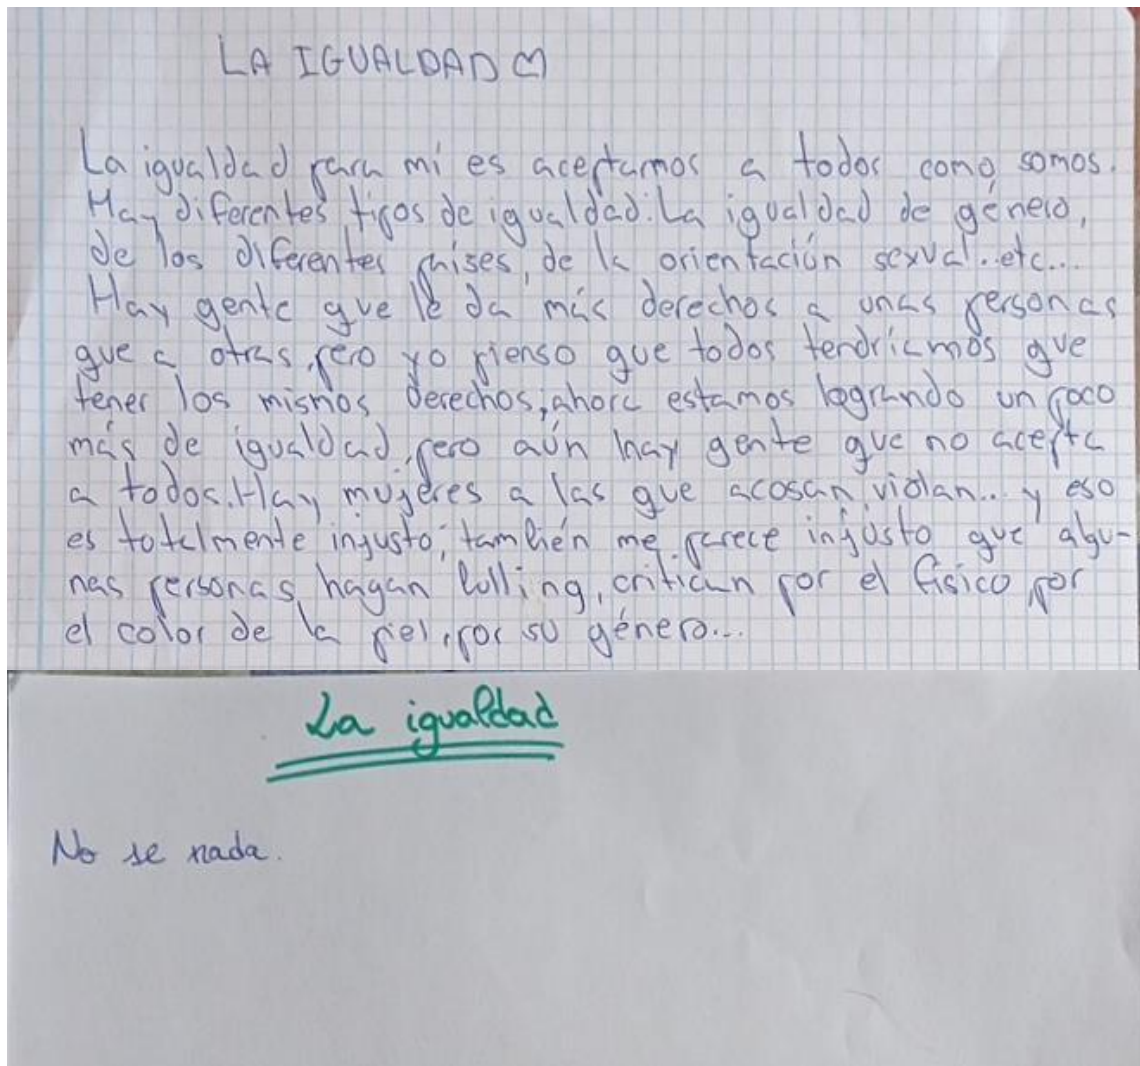 LA IGUALDAD
La igualdad para mí es aceptarnos a todos como somos.
Hay diferentes tipos de igualdad: La igualdad de género,
de los diferentes paises, de la orientación sexual...etc...
Hay gente que le da más derechos a unas personas
que a otras, pero yo pienso que todos tendríamos que
tener los mismos derechos; ahora estamos logrando un poco
más de igualdad, pero aún hay gente que no acepta
a todos. Hay mujeres a las que acosan, violan... y eso
es totalmente injusto; también me parece injusto que algu-
nas personas hagan bulling, critican por el físico, por
el color de la piel, por su género...
La igualdad
No se nada.